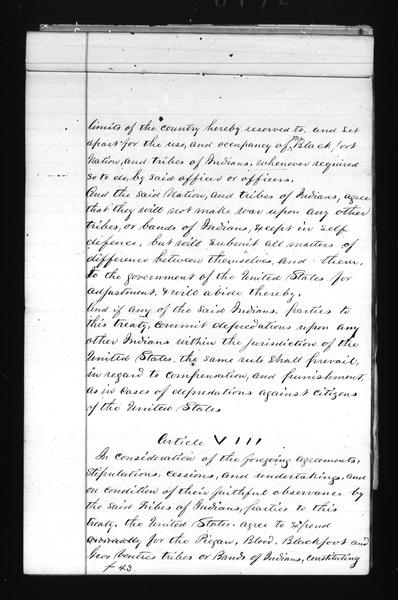 limits of the country hereby reserved to, and set
apart for the use, and occupancy of the Black foot
Nation, and tribes of Indians, whenever required
so to do, by said officer or officers.
And the said Nation, and tribes of Indians, agree
that they will not make war upon any other
tribes, or bands of Indians, except in self
defence, but will submit all matters of
difference between themselves, and them,
to the government of the United States for
adjustment, & will abide thereby.
And if any of the said Indians, parties to
this treaty, commit depredations upon any
other Indians within the jurisdiction of the
United States, the same rule shall prevail,
in regard to compensation, and punishment,
as in cases of depredations against citizens
of the United States
Article VIII
In consideration of the foregoing agreements,
stipulations, cessions, and undertakings, and
on condition of their faithful observance by
the said Tribes of Indians, parties to this
treaty, the United States, agree to expend
annually for the Piegan, Blood, Blackfoot and
Gros Ventres tribes or Bands of Indians, constituting
43